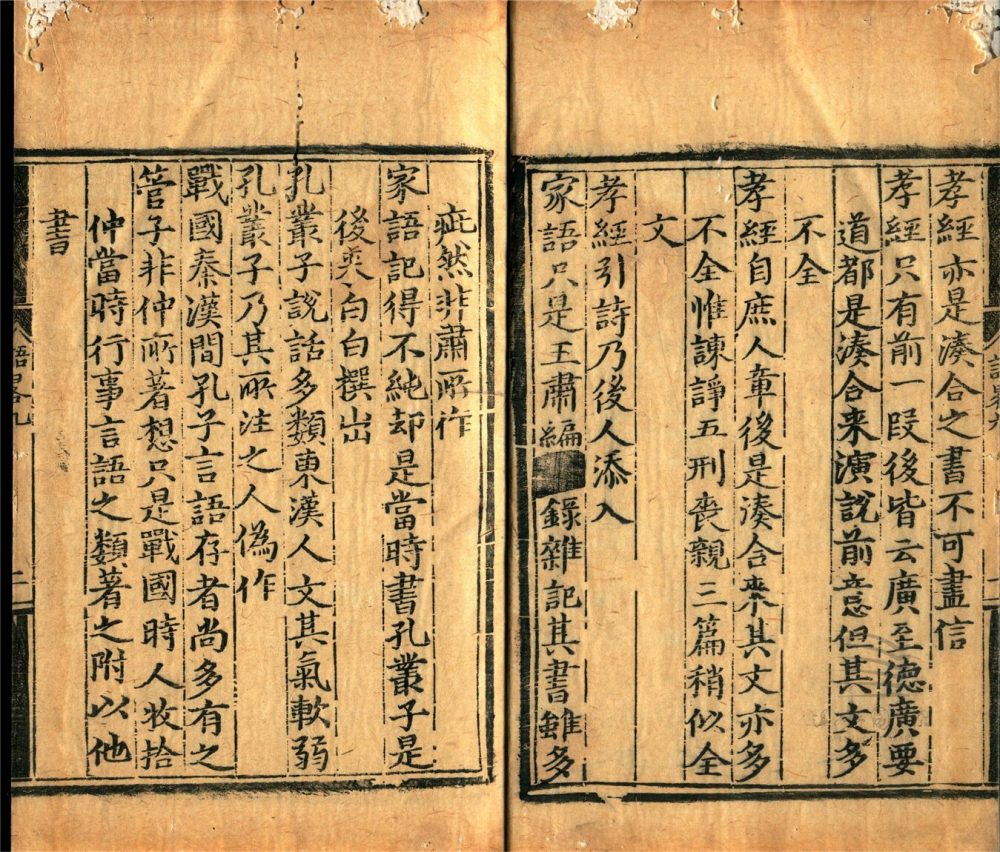 孝經亦是湊合之書不可盡信
孝經只有前一段後皆云廣至德廣要
道都是湊合来演說前意但其文多
不全
孝經自庶人章後是湊合来其文亦多
不全惟諫諍五刑喪親三篇稍似全
文
孝經引詩乃後人添入
家語只是王肅編錄雜記其書雖多
疵然非肅所作
家語記得不純却是當時書孔叢子是
後来白白撰出
孔叢子說話多類東漢人文其氣軟弱
孔叢子乃其所注之人偽作
戰國秦漢間孔子言語存者尚多有之
管子非仲所著想只是戰國時人收拾
仲當時行事言語之類著之附以他
書